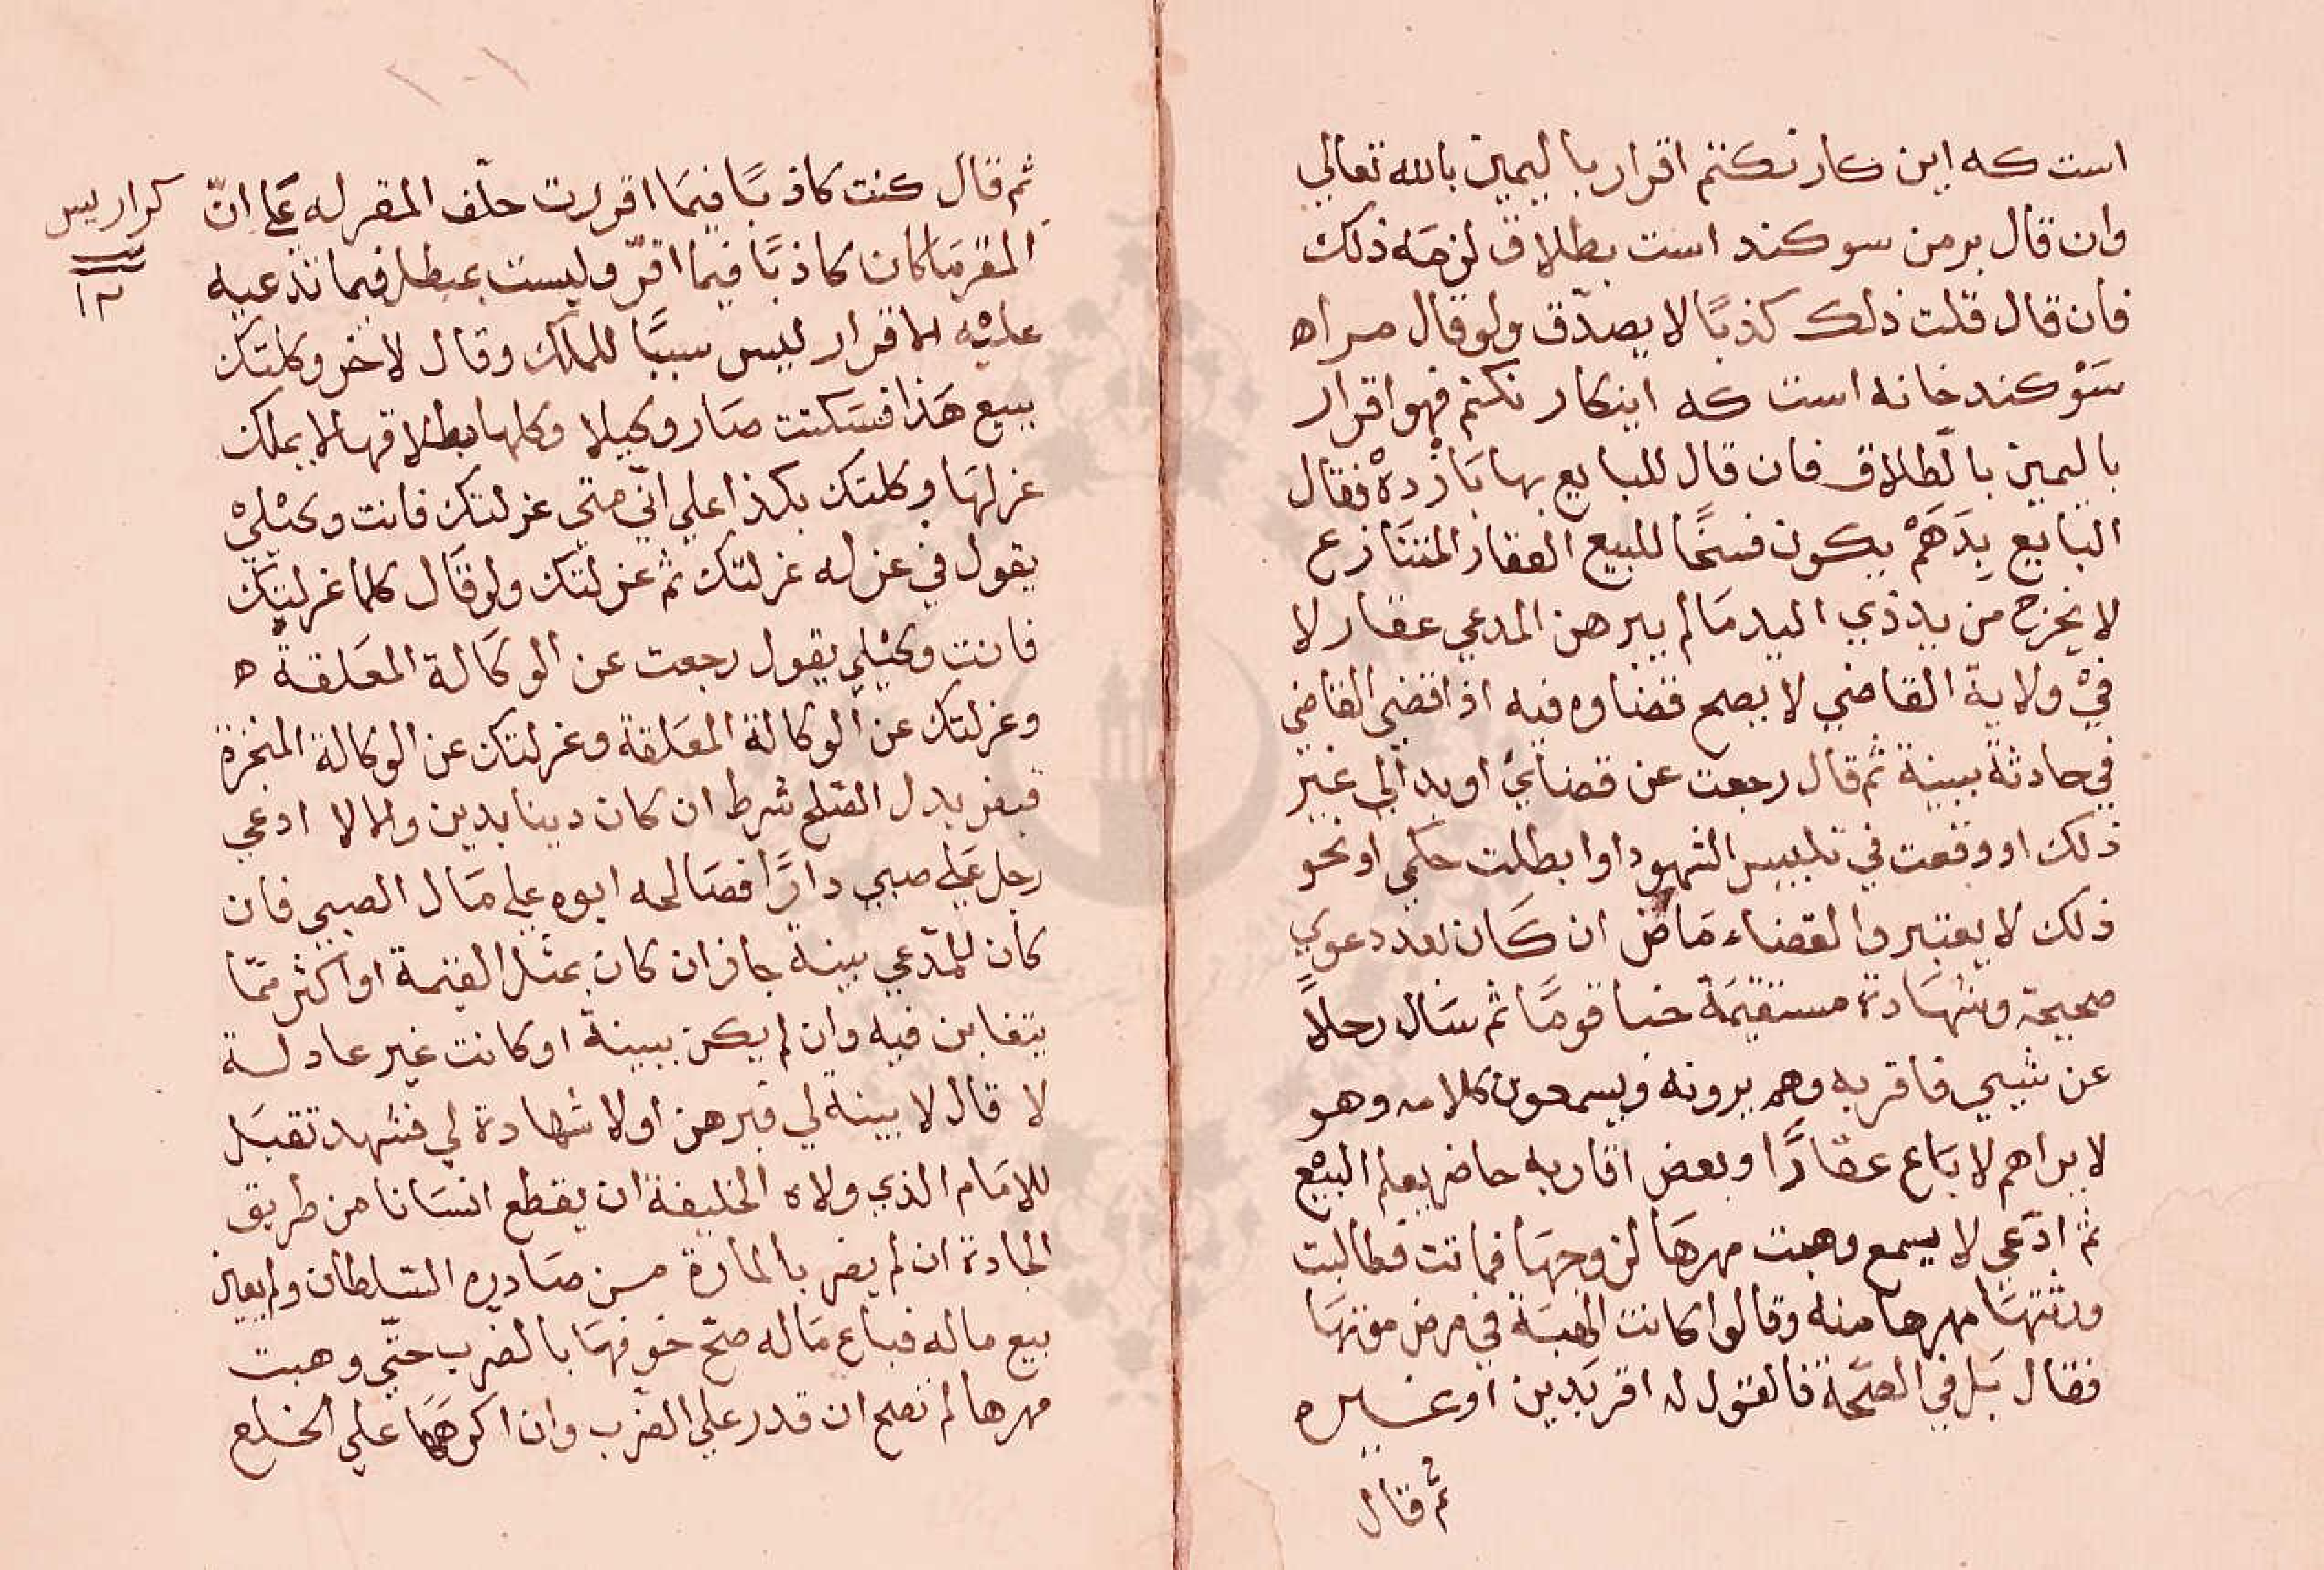 است كه اين كار نكنم اقرار باليمين بالله تعالي
وان قال بر من سوكند است بطلاق لزمه ذلك
فان قال قلت ذلك كذبًا لا يصدّق ولو قال مراه
سَوْكند خانه است كه اينكار نكنم فهو اقرار
باليمين بالطّلاق فان قال للبايع بها بَازْ دِهْ فقال
البَايع بِدَهَمْ يكون فسخًا للبيع العقار المتنَازع
لا يخرج من يد ذي اليد مَا لم يبرهن المدعي عقار لا
فيْ ولاية القاضي لا يصح قضاوه فيه اذا قضى القاضي
في حادثة ببينة ثم قال رجعت عن قضائي او بدا لي غير
ذلك او وقعت في تلبيس الشهود او ابطلت حكمي او نحو
ذلك لا يعتبر والقضاء مَاض ان كَان بعد دعوي
صحيحة وشهَادة مستقيمَة خبا قومًا ثم سَال رجلاً
عن شيي فاقر به وهم يرونه ويسمعون كلامه وهو
لا يراهم لا بَاع عقارًا وبعض اقاربه حاضر يعلم البيْع
ثم ادّعي لا يسمع وهبت مهرهَا لزوجهَا فماتت فطالبت
ورثتهَا مهرها منه وقالوا كانت الهبَة في مرض موتهَا
فقال بَل في الصّحّة فالقول له اقر بَدين او غيره
ثم قال
ثم قال كنت كاذبًا فيمَا اقررت حلّف المقر له عَلي انّ
المقر مَا كان كاذبًا فيما اقرّ وليست بمبطل فيما تدّعيه
عليْه الاقرار ليس سببًا للملك وقال لاخر وكلتك
ببيع هَذا فسَكتت صَار وكيلا وكلها بطلاقها لا يملك
عزلهَا وكلتك بكذا علي انّي متي عزلتك فانت وكيْليْ
يقول في عزله عزلتك ثم عزلتك ولو قَال كلما عزلتك
فانت وكيْلي يقول رجعت عن الوكَالة المعَلقة ه
وعزلتك عن الوكالة المعَلقة وعزلتك عن الوكالة المنجزة
قبض بدل الصّلح شرط ان كان دينا بدين والا لا ادعي
رجل عَلي صبي دارًا فصَالحه ابوه علي مَال الصبي فان
كان للمدّعي بينة جاز ان كان بمثل القيمة او اكثر ممّا
يتغابن فيه وان لم يكن ببينة او كانت غير عادلة
لا قال لا بينة لي فبرهن او لا شهادة لي فشهد تقبَل
للامَام الذي ولاه الخليفة ان يقطع انسَانا من طريق
الجادة ان لم يضر بالمارة من صَادره السّلطان ولم يعين
بيع ماله فباع مَاله صحّ خوفهَا بالضرب حتّي وهبت
مهرها لم تصح ان قدر علي الضّرب وان اكرههَا علي الخلع
كراريس
١٢